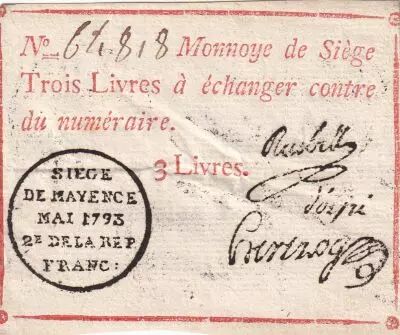 No. 64818 Monnoye de Siège
Trois Livres à échanger contre
du numéraire.
3 Livres.
SIEGE
DE MAYENCE
MAI 1793
2E DE LA REP.
FRANC: